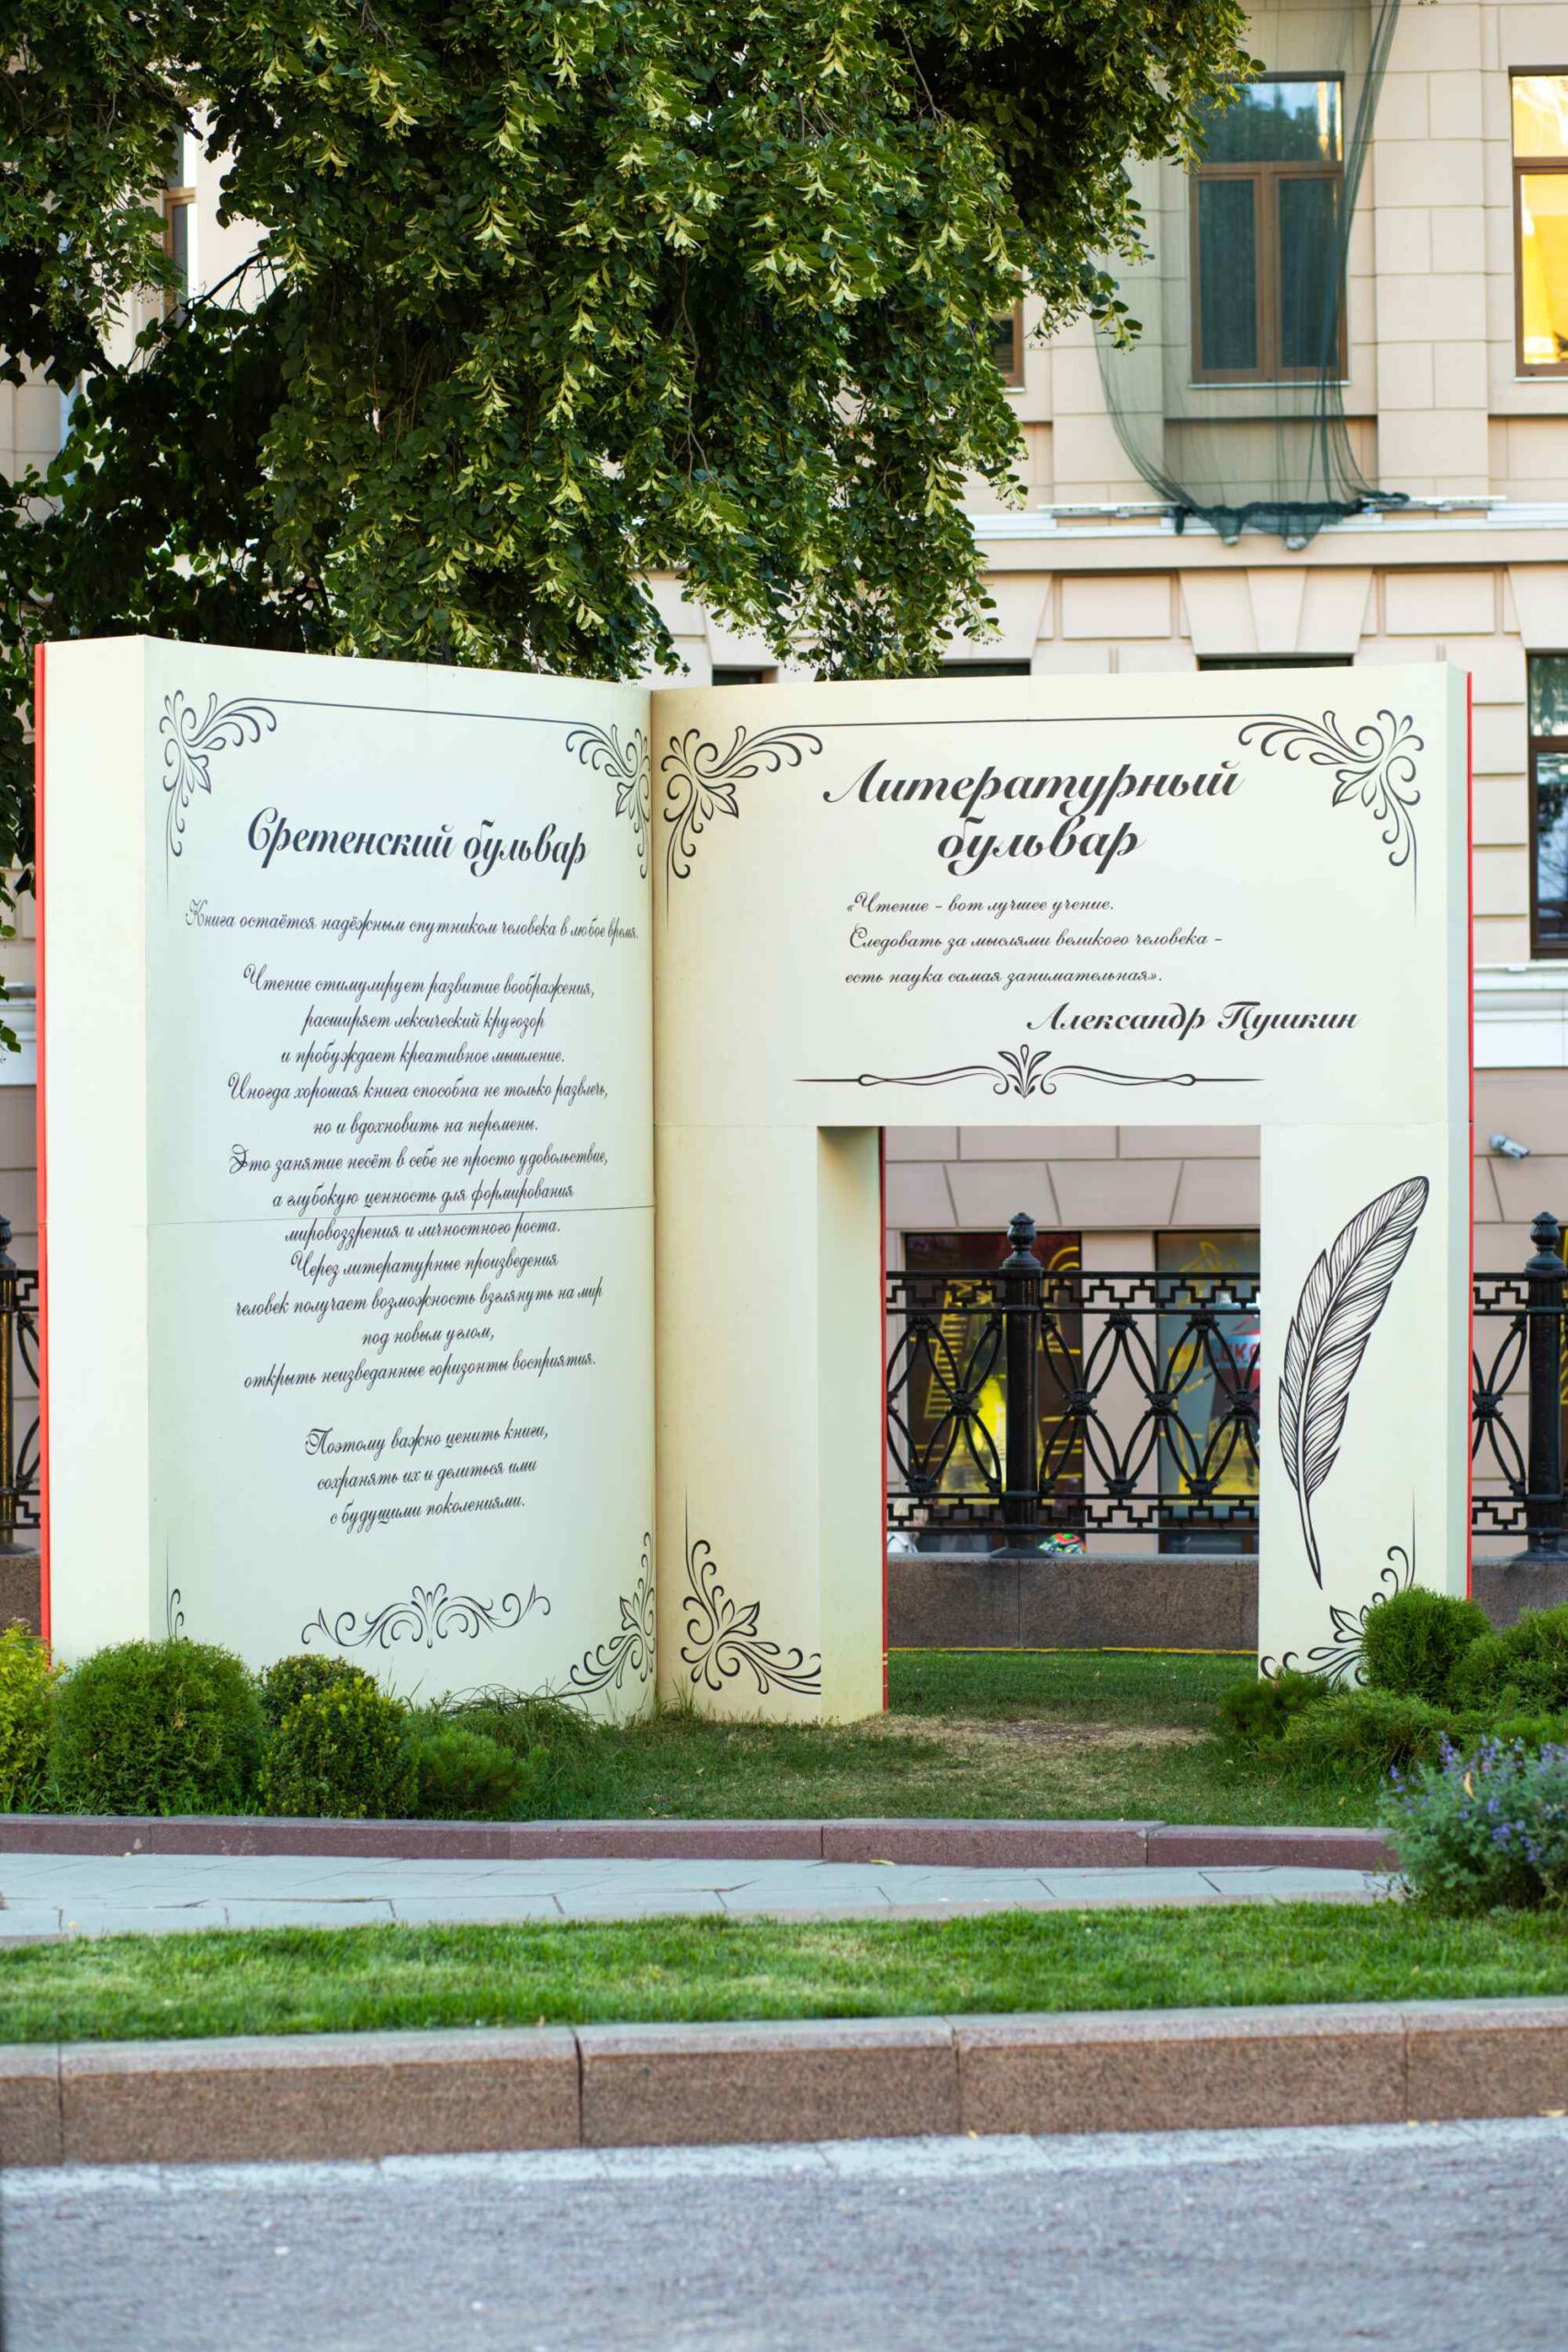 Сретенский бульвар
Книга остаётся надёжным спутником человека в любое время.
Чтение стимулирует развитие воображения,
расширяет лексический кругозор
и пробуждает креативное мышление.
Иногда хорошая книга способна не только развлечь,
но и вдохновить на перемены.
Это занятие несёт в себе не просто удовольствие,
а глубокую ценность для формирования
мировоззрения и личностного роста.
Через литературные произведения
человек получает возможность взглянуть на мир
под новым углом,
открыть неизведанные горизонты восприятия.
Поэтому важно ценить книги,
сохранять их и делиться ими
с будущими поколениями.
Литературный
бульвар
«Чтение – вот лучшее учение.
Следовать за мыслями великого человека –
есть наука самая занимательная».
Александр Пушкин